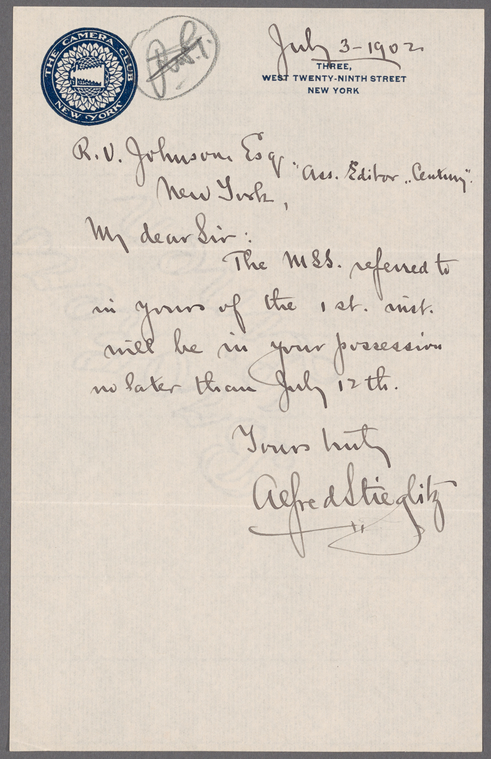 THE CAMERA CLUB
NEW YORK
July 3-1902
THREE,
WEST TWENTY-NINTH STREET
NEW YORK
R. U. Johnson. Esq. "Ass. Editor „Century".
New York,
My dear Sir:
The MSS. referred to
in yours of the 1st. inst.
will be in your possession
no later than July 12th.
Yours truly
Alfred Stieglitz